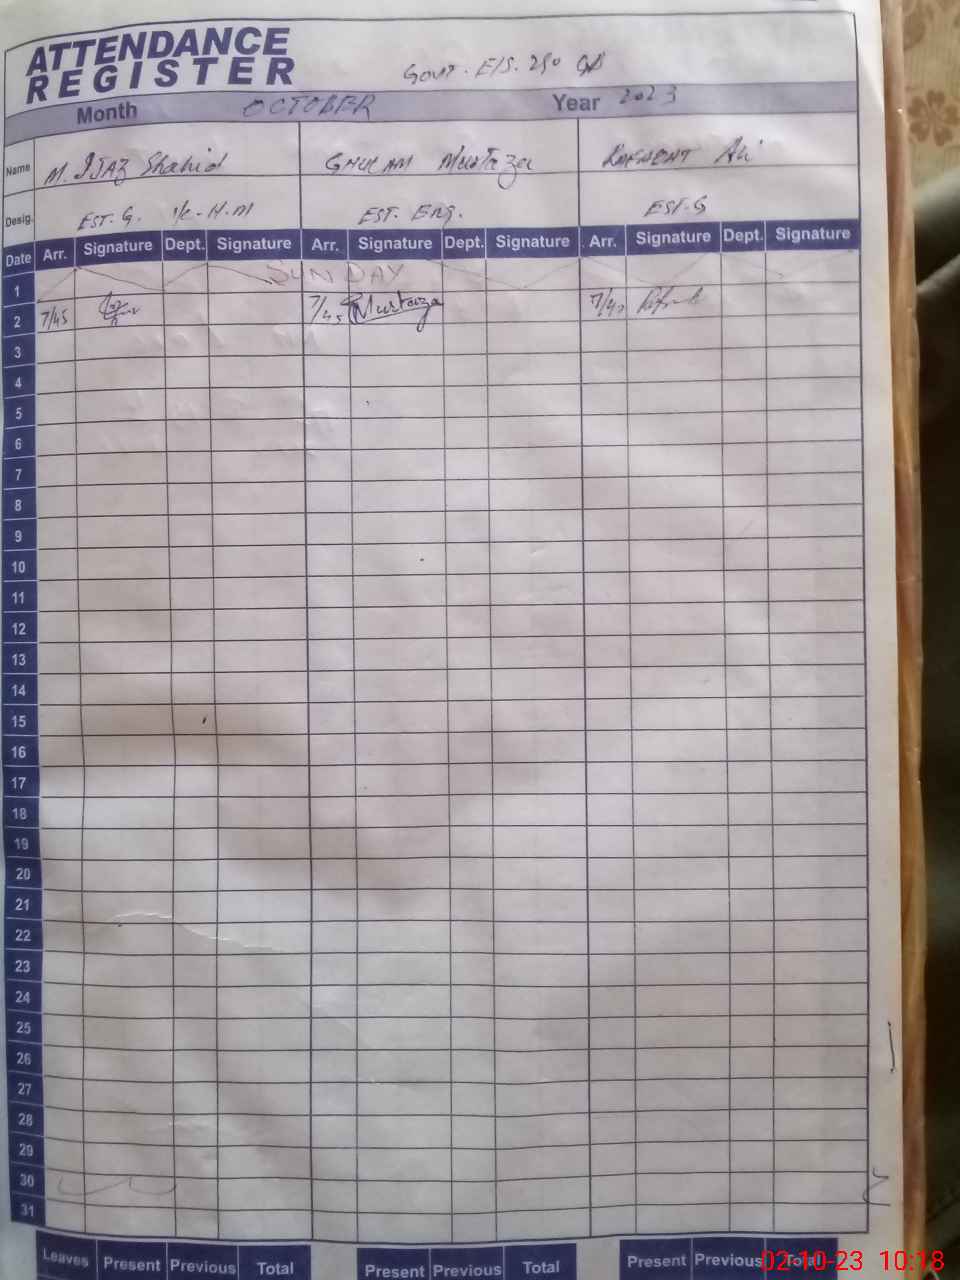 ATTENDANCE
REGISTER
GOVT. E/S. 290 GB
Month OCTOBER Year 2023
Name M. IJAZ Shahid GHULAM Murtaza Ali
Desig. EST. G. I/c - H.M EST. Eng. EST. G
Date Arr. Signature Dept. Signature Arr. Signature Dept. Signature Arr. Signature Dept. Signature
1 SUNDAY
2 7/45 7/45 Murtaza
3
4
5
6
7
8
9
10
11
12
13
14
15
16
17
18
19
20
21
22
23
24
25
26
27
28
29
30
31
Leaves Present Previous Total Present Previous Total Present Previous Total
02-10-23 10:18